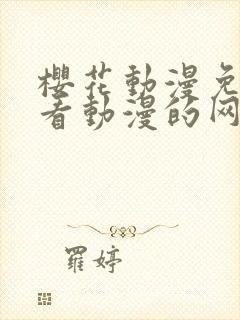 櫻花動漫免
看動漫的网
羅婷